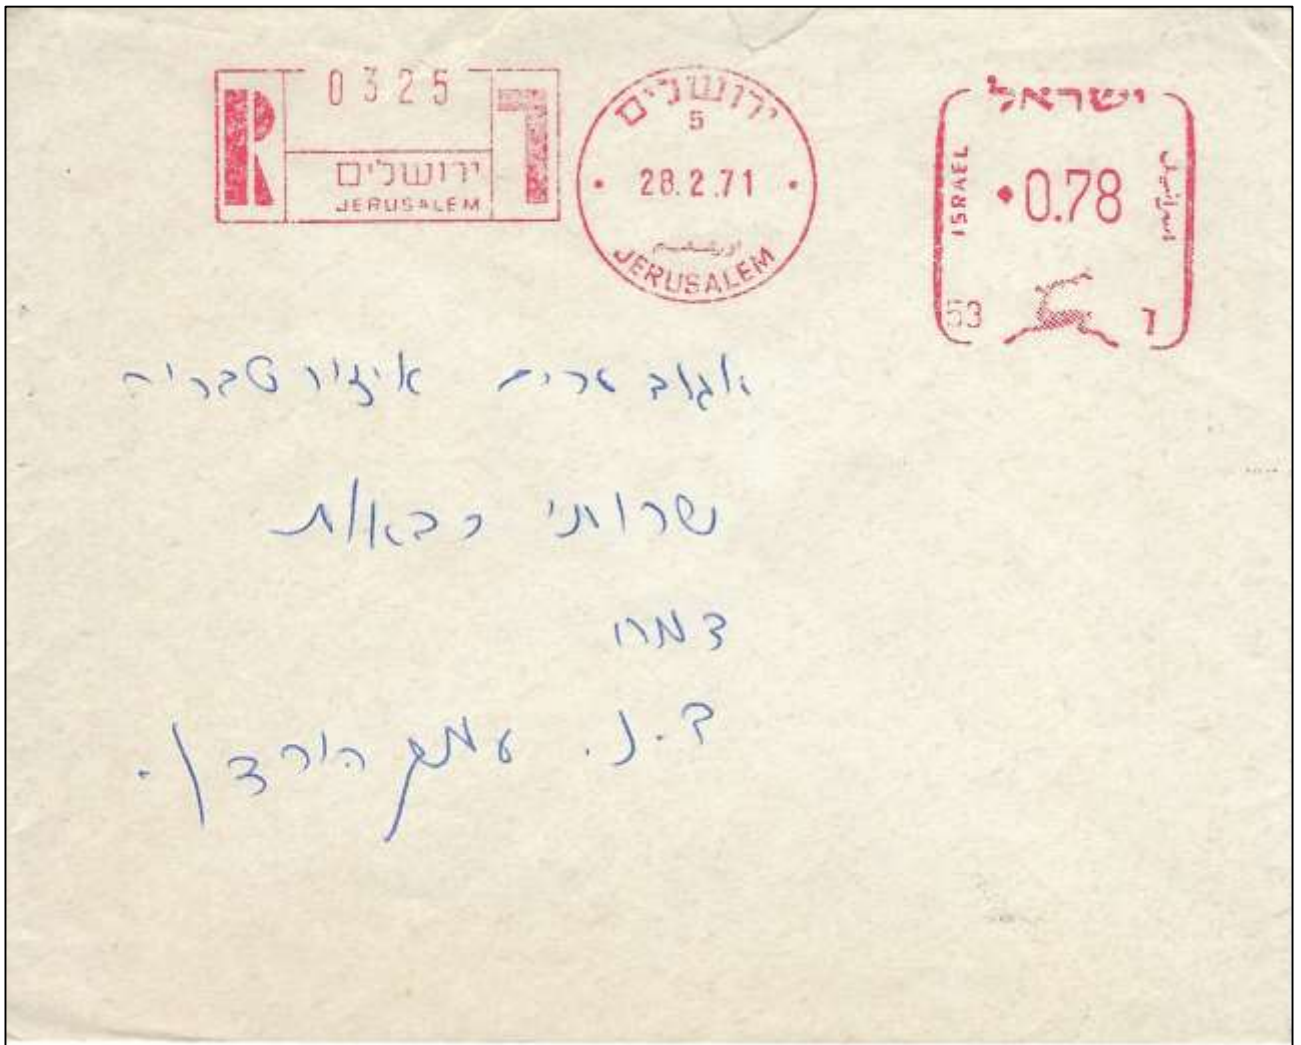 R 0325 ר
ירושלים
JERUSALEM
ירושלים
5
28.2.71
اورشليم
JERUSALEM
ישראל
ISRAEL 0.78 اسرائيل
53
אגוד ערים איזור טבריה
שרותי כבאות
צמח
ד.נ. עמק הירדן.